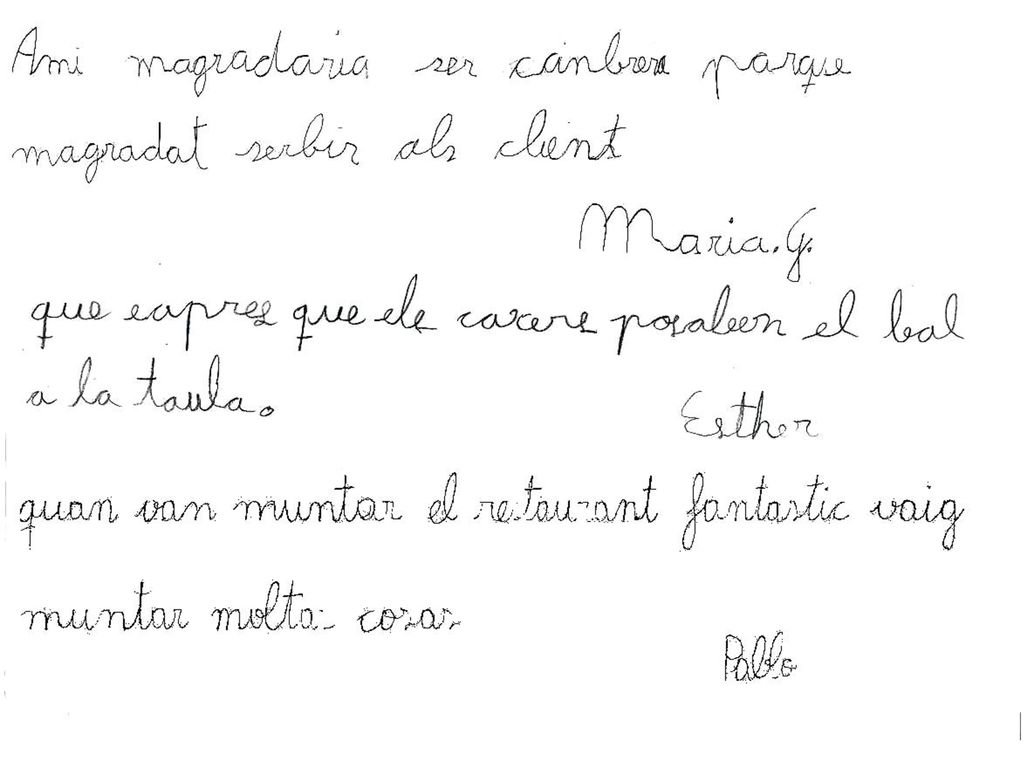 Ami magradaria ser canbrera parque
magradat serbir als client
Maria.G.
que eapres que els caxers posaben el bal
a la taula.
Esther
quan van muntar el restaurant fantastic vaig
muntar moltas cosas
Pablo